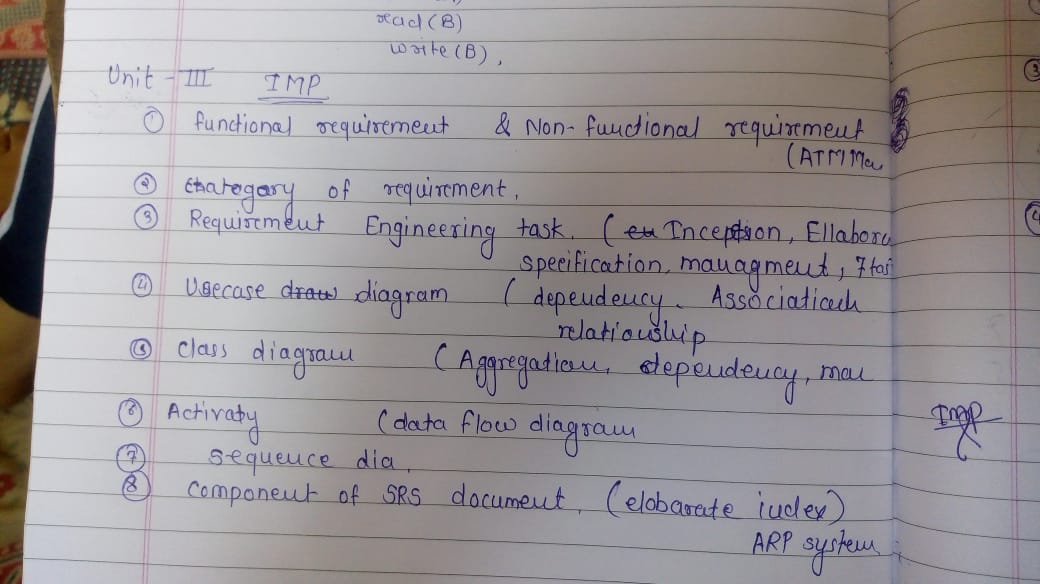 read (B)
write (B),
Unit - III IMP
① functional requirement & Non-functional requirement
(ATM Ma
② Chategary of requirment,
③ Requirement Engineering task. ( Inception, Ellabora
specification, managment, 7 tas
④ Usecase draw diagram ( dependency. Association
relationship
⑤ class diagram ( Aggregation, dependency, mau
⑥ Activaty (data flow diagram
⑦ sequence dia,
⑧ component of SRS document, (elobarate index)
ARP system
③
④
Imp